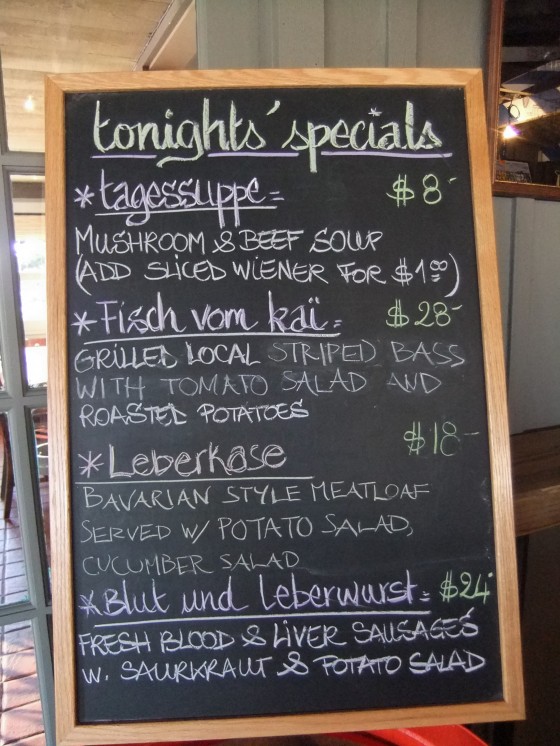 tonights' specials
*tagessuppe= $8-
MUSHROOM & BEEF SOUP
(ADD SLICED WIENER FOR $1.00)
*Fisch vom kai= $28-
GRILLED LOCAL STRIPED BASS
WITH TOMATO SALAD AND
ROASTED POTATOES
$18-
*Leberkäse
BAVARIAN STYLE MEATLOAF
SERVED W/ POTATO SALAD,
CUCUMBER SALAD
*Blut und Leberwurst= $24-
FRESH BLOOD & LIVER SAUSAGES
W. SAURKRAUT & POTATO SALAD